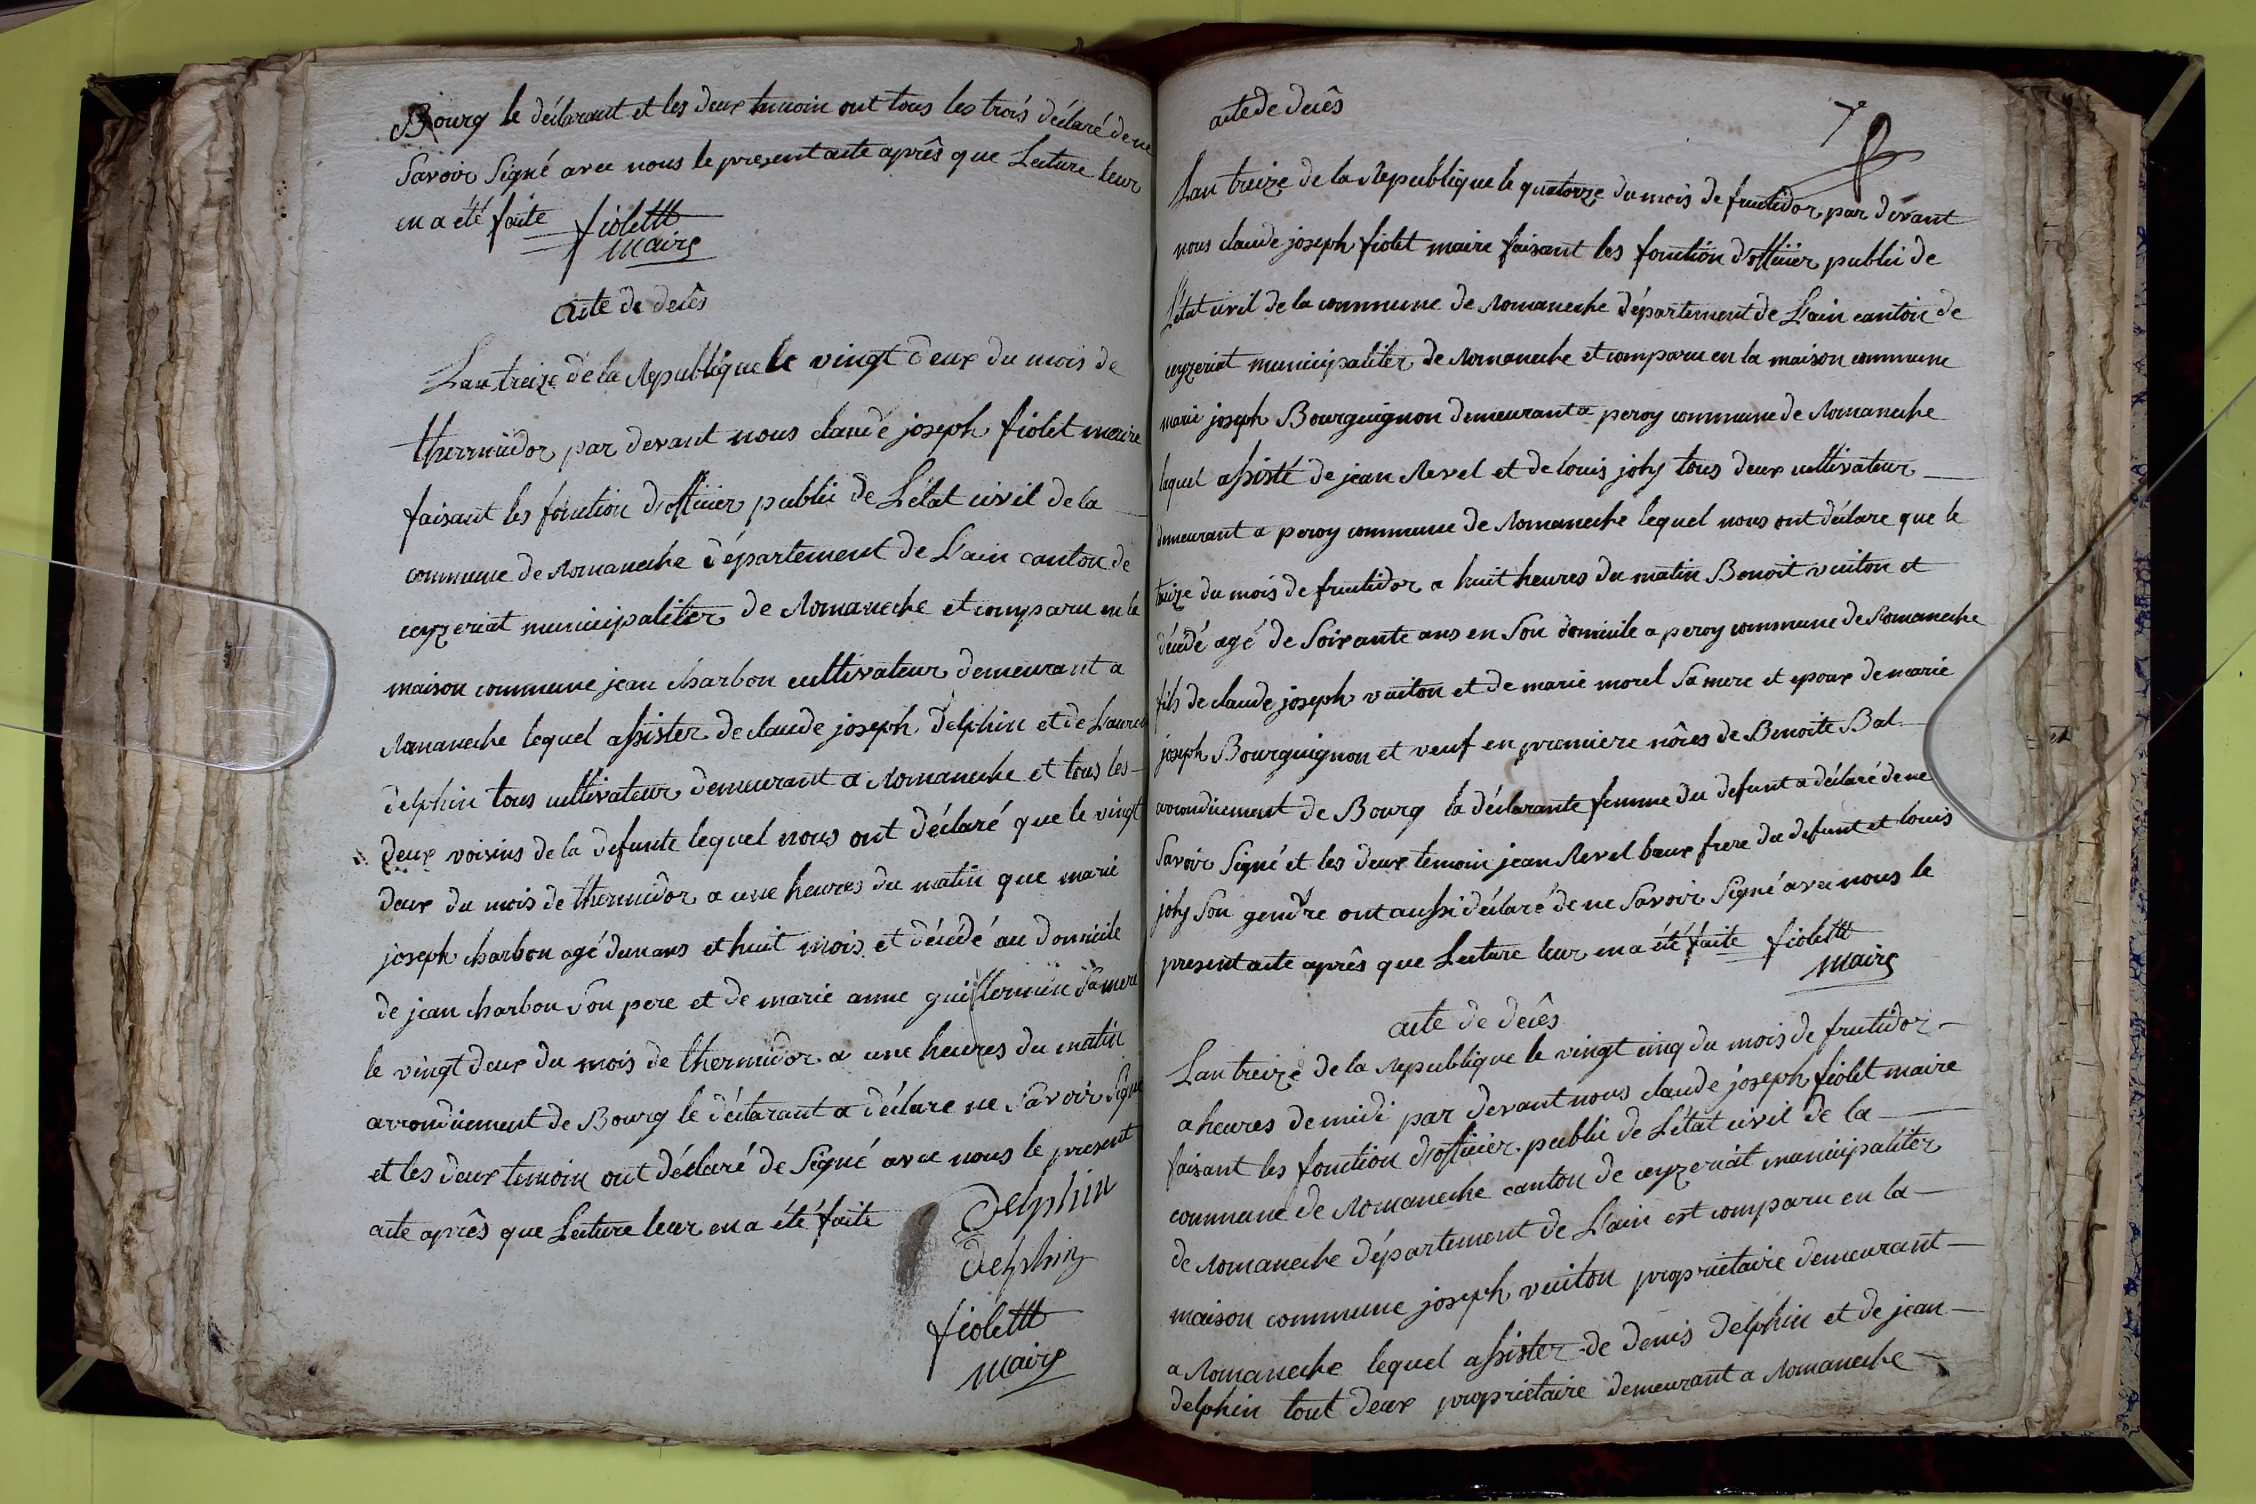 Bourg le déclarant et les deux temoin ont tous les trois déclaré de ne
savoir Signé avec nous le present acte après que Lecture leur
en a été faite fiolett
maire
acte de decês
Lan treize de la Republique le vingt deux du mois de
thermidor par devant nous claude joseph fiolet maire
faisant les fonction d'officier public de L'état civil de la
commune de Romaneche département de L'ain canton de
ceyzeriat municipaliter de Romaneche et comparu en la
maison commune jean charbon cultivateur demeurant a
Romaneche lequel assister de claude joseph delphin et de Laurent
delphin tous cultivateur demeurant a Romaneche et tous les
deux voisins de la defunte lequel nous ont déclaré que le vingt
deux du mois de thermidor a une heures du matin que marie
joseph charbon agé dun ans et huit mois et décédé au domicile
de jean charbon son pere et de marie anne guillermin sa mere
le vingt deux du mois de thermidor a une heures du matin
arrondiiement de Bourg le déclarant a déclare ne savoir Signé
et les deux temoin ont déclaré de Signé avec nous le present
acte après que Lecture leur en a été faite
Delphin
delphin
fiolett
maire
acte de decês
7e
Lan treize de la Republique le quatorze du mois de fructidor par devant
nous claude joseph fiolet maire faisant les fonction d'officier public de
L'état civil de la commune de Romaneche département de L'ain canton de
ceyzeriat municipaliter de Romaneche et comparu en la maison commune
marie joseph Bourguignon demeurant a peroy commune de Romaneche
laquel assisté de jean Revel et de louis joly tous deux cultivateur
demeurant a peroy commune de Romaneche lequel nous ont déclare que le
treize du mois de fructidor a huit heures du matin Benoit vuiton et
décédé agé de Soixante ans en Son domicile a peroy commune de Romaneche
fils de claude joseph vuiton et de marie morel Sa mere et epoux de marie
joseph Bourguignon et veuf en premiere nôces de Benoite Bal
arrondiiement de Bourg la déclarante femme du defunt a déclaré de ne
savoir Signé et les deux temoin jean Revel beux frere du defunt et louis
joly Son gendre ont aussi déclaré de ne Savoir Signé avec nous le
present acte après que Lecture leur en a été faite fiolett
maire
acte de decês
Lan treize de la Republique le vingt cinq du mois de fructidor
a heures de midi par devant nous claude joseph fiolet maire
faisant les fonction d'officier public de L'état civil de la
commune de Romaneche canton de ceyzeriat municipaliter
de Romaneche département de L'ain est comparu en la
maison commune joseph vuiton proprietaire demeurant
a Romaneche lequel assister de denis delphin et de jean
delphin tout deux proprietaire demeurant a Romaneche